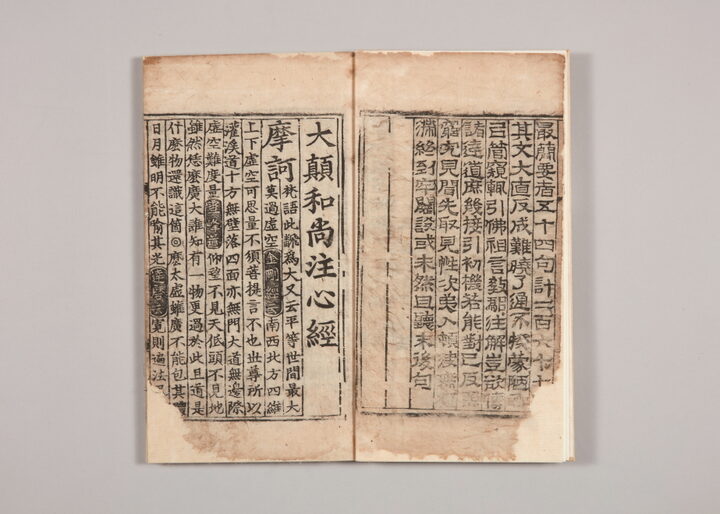 最簡要者五十四句計二百六十七
其文大直反成難曉了還不揆蒙陋
管窺輒引佛祖言教註解豈欲傳
諸達道庶幾接引初機若能對己反
窮究見聞先取見性次
淵絕到空設或未然且聽末後句
大顚和尚注心經
摩訶梵語此謂爲大又云平等世間最大
莫過虛空金剛經云南西北方四維
上下虛空可思量不須菩提言不也世尊所以
灌溪道十方無壁落四面亦無門大道無邊際
虛空難度量仰望不見天低頭不見地
雖然恁麼廣大誰知有一物更過於此且道是
什麼物還識這箇◎麼太虛雖廣不能包其體
日月雖明不能喻其光寬則遍法